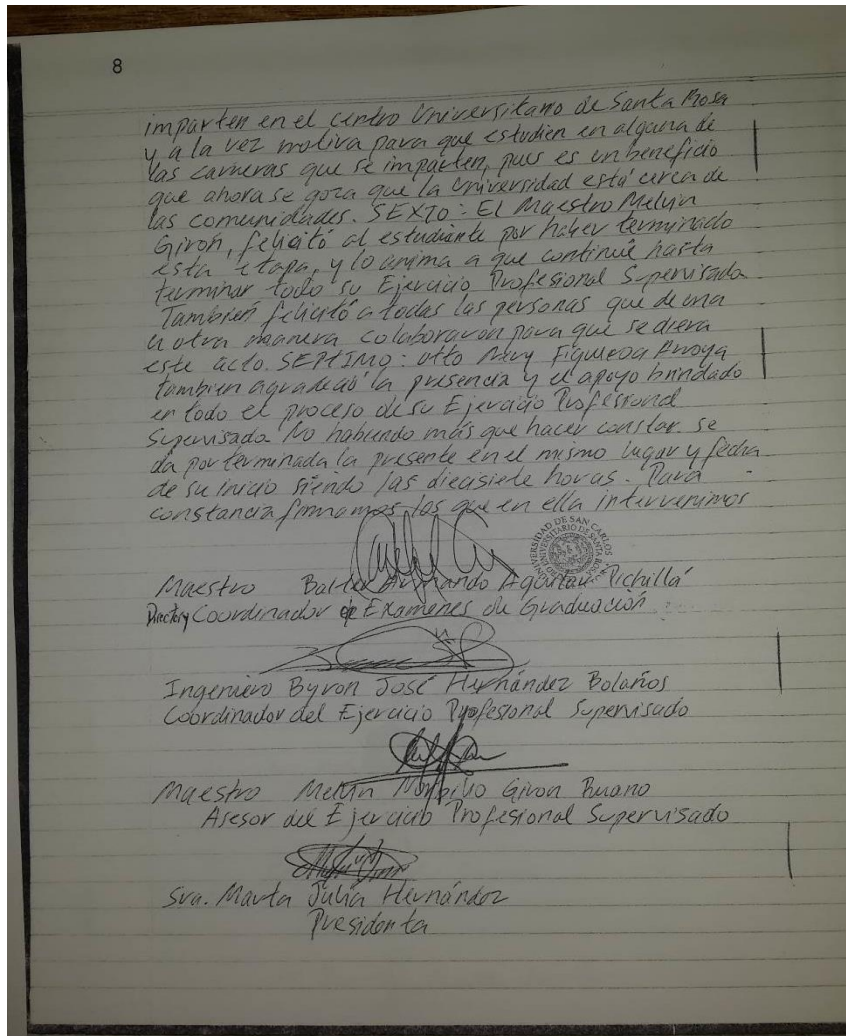 8
imparten en el centro Universitario de Santa Rosa
y a la vez motiva para que estudien en alguna de
las carreras que se imparten, pues es un beneficio
que ahora se goza que la Universidad está cerca de
las comunidades. SEXTO: El Maestro Melvin
Giron, felicitó al estudiante por haber terminado
esta etapa, y lo anima a que continúe hasta
terminar todo su Ejercicio Profesional Supervisado
También felicitó a todas las personas que de una
u otra manera colaboraron para que se diera
este acto. SEPTIMO: Otto Figueroa
tambien agradeció la presencia y el apoyo brindado
en todo el proceso de su Ejercicio Profesional
Supervisado. No habiendo más que hacer constar se
da por terminada la presente en el mismo lugar y fecha
de su inicio siendo las diecisiete horas. Para
constancia firmamos los que en ella intervenimos
UNIVERSIDAD DE SAN CARLOS
Maestro Armando Aguilar Pichillá
Coordinador de Examenes de Graduación
Ingeniero Byron José Hernández Bolaños
Coordinador del Ejercicio Profesional Supervisado
Maestro Melvin Giron Ruano
Asesor del Ejercicio Profesional Supervisado
Sra. Marta Julia Hernández
Presidenta